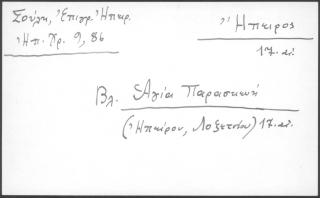 Σούλη, Ἐπιγρ. Ἠπειρ.
Ἠπ. Χρ. 9, 86
Ἤπειρος
17. αἰ.
Βλ. Ἁγία Παρασκευή
(Ἠπείρου, Λοζετσίου) 17. αἰ.